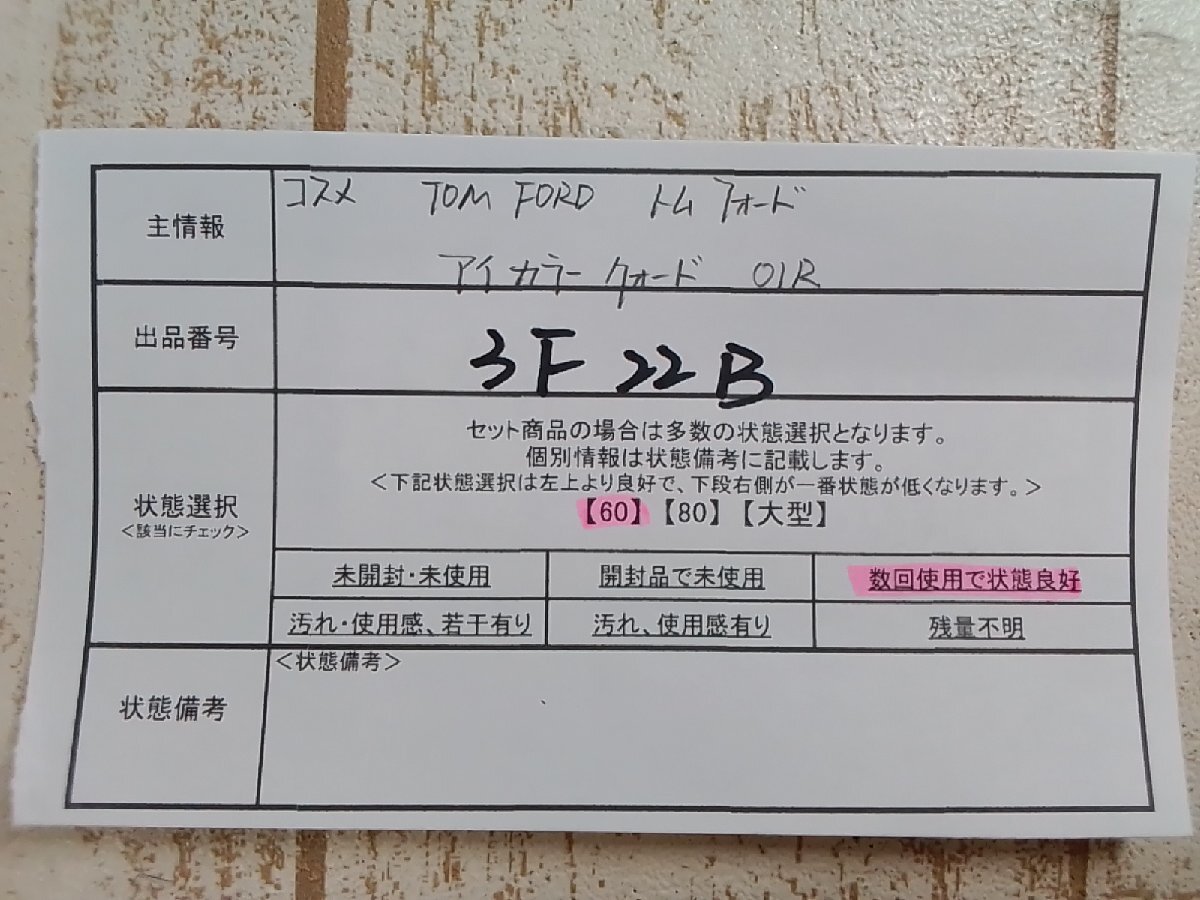 主情報
コスメ TOM FORD トム フォード
アイカラークォード 01R
出品番号
3F 22 B
状態選択
<該当にチェック>
セット商品の場合は多数の状態選択となります。
個別情報は状態備考に記載します。
<下記状態選択は左上より良好で、下段右側が一番状態が低くなります。>
【60】【80】【大型】
未開封・未使用 開封品で未使用 数回使用で状態良好
汚れ・使用感、若干有り 汚れ、使用感有り 残量不明
状態備考
<状態備考>